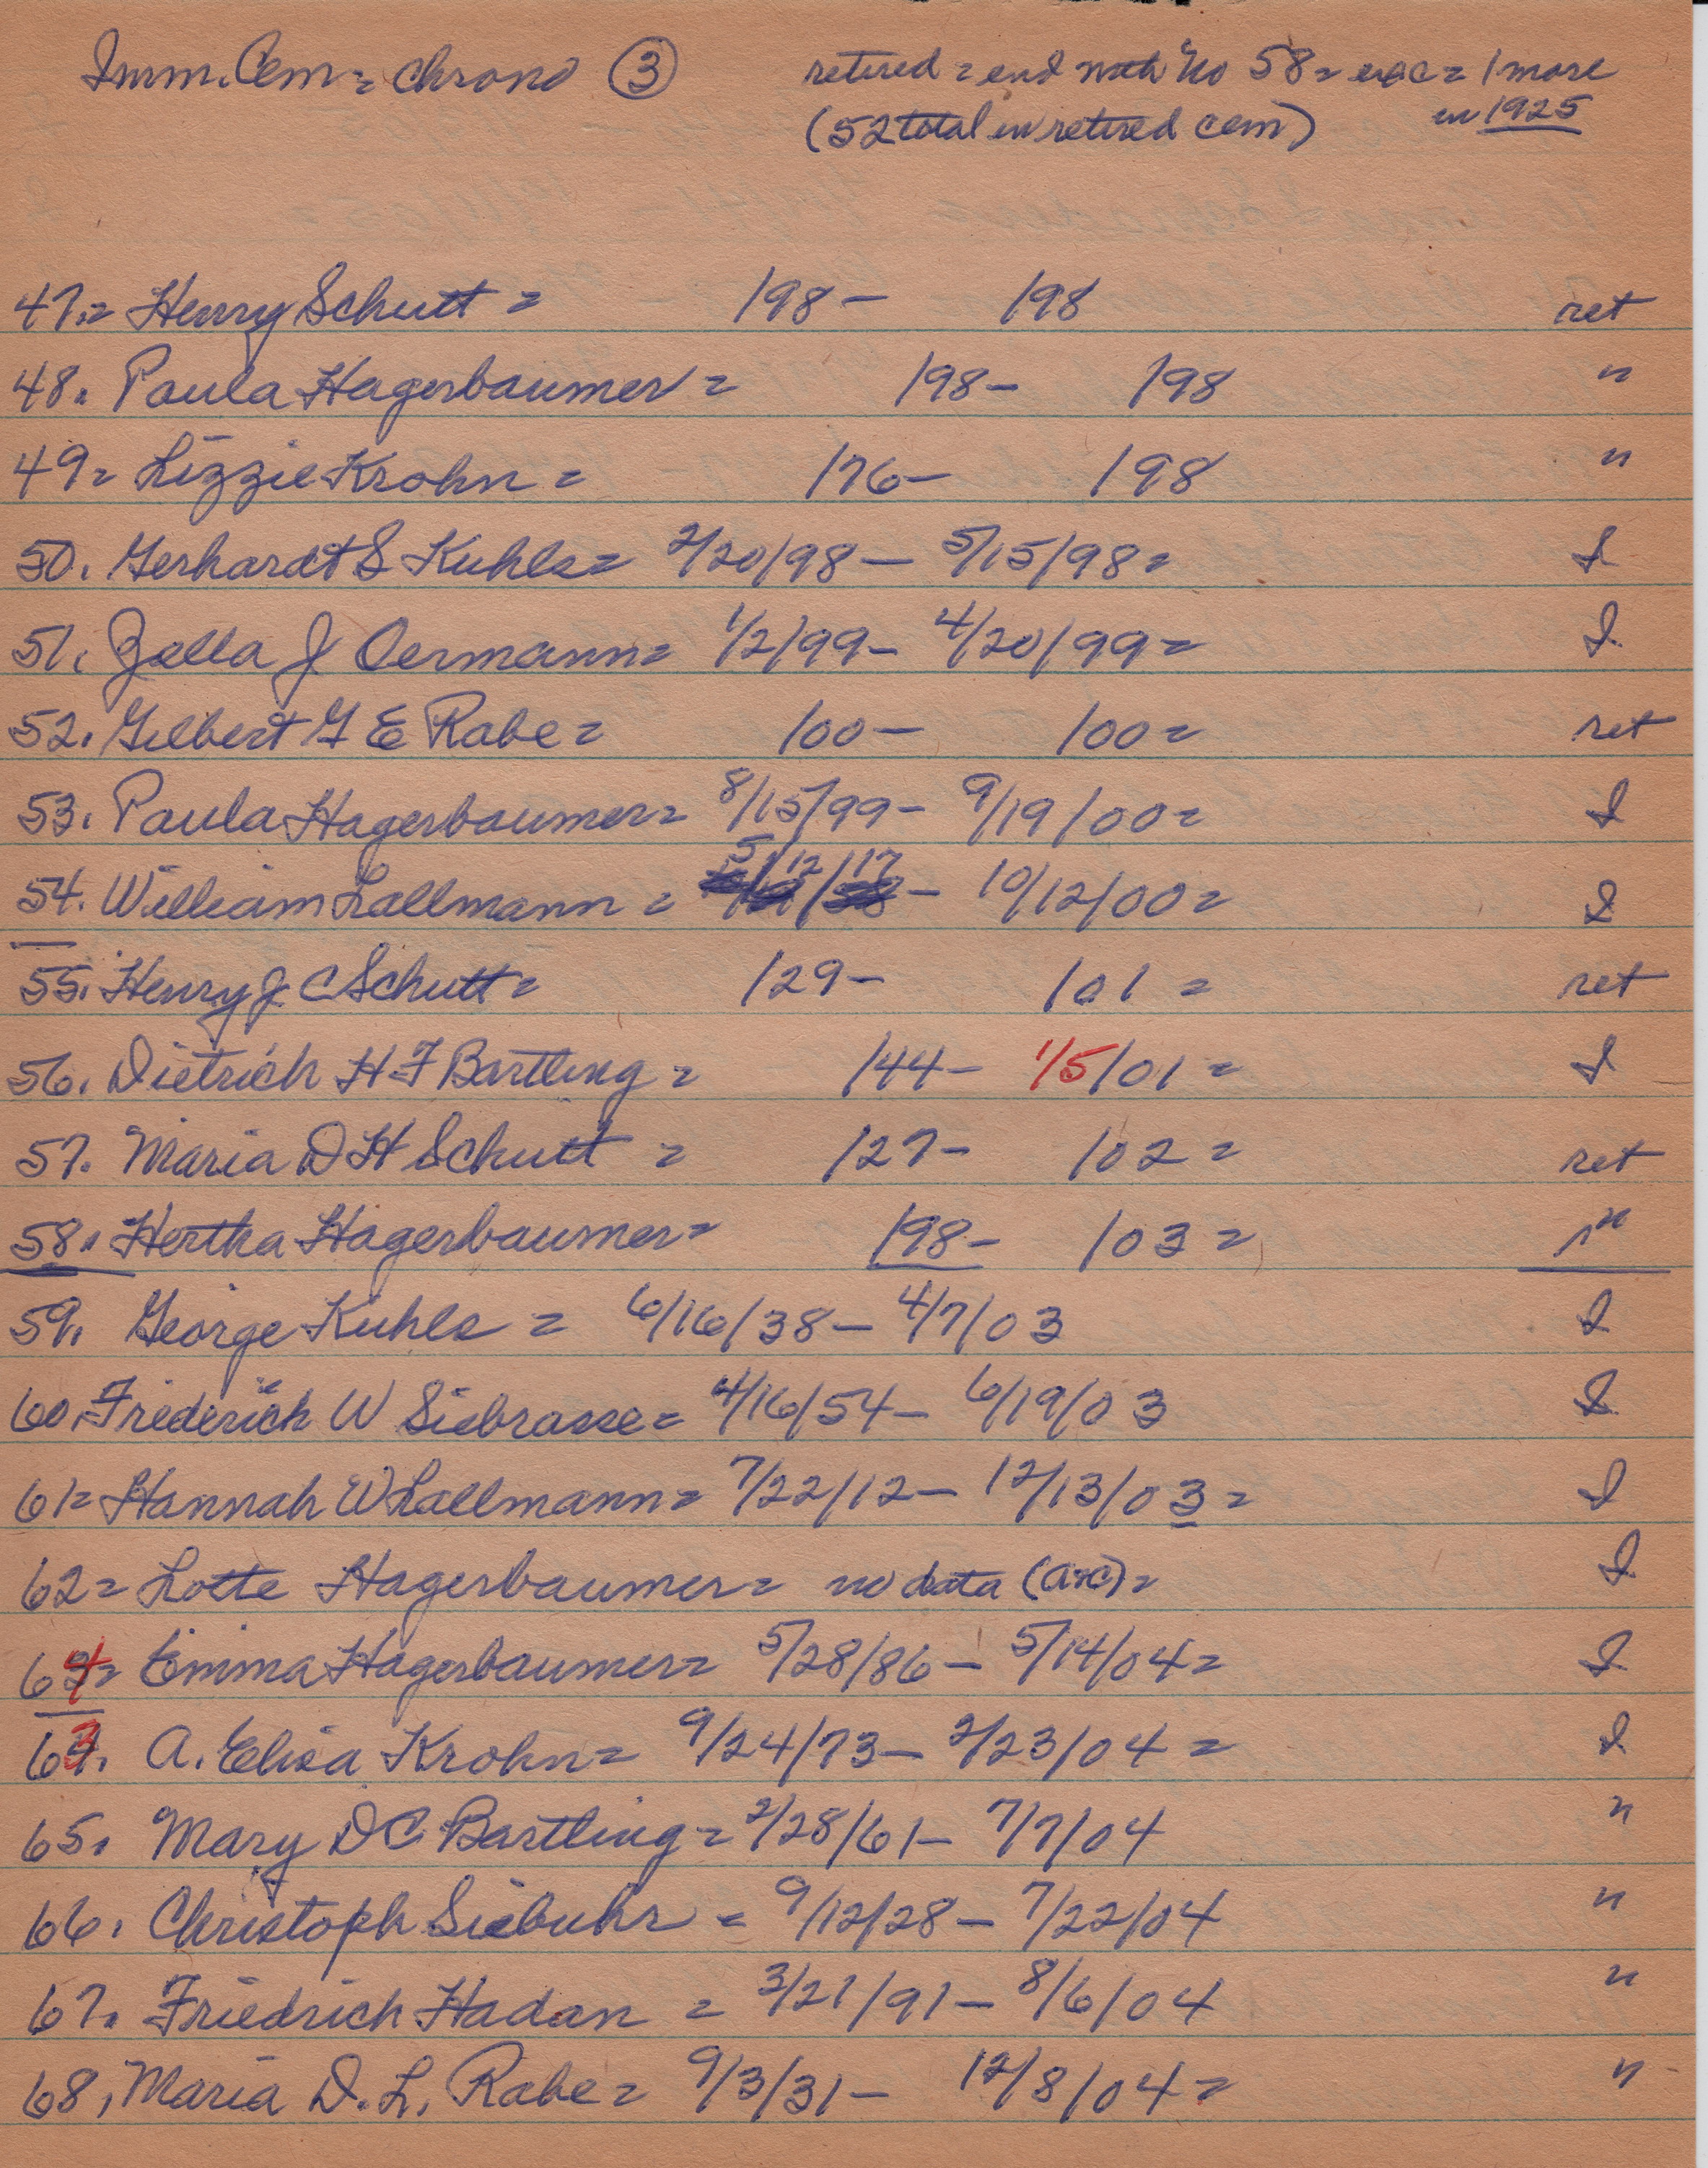 Imm. Cem = Chrono ③ retired = end with No 58 = exc = 1 more
(52 total in retired cem) in 1925
47.= Henry Schutt = /98 - /98 ret
48. Paula Hagerbaumer = /98 - /98 "
49= Lizzie Krohn = /76 - /98 "
50. Gerhardt S Kuhls = 2/20/98 - 5/15/98 = I
51. Zella J Oermann = 1/2/99 - 4/20/99 = I
52. Gilbert G E Rabe = /00 - /00 = ret
53. Paula Hagerbaumer = 8/15/99 - 9/19/00 = I
54. William Lallmann = 5/12/17 - 10/12/00 = I
55. Henry J C Schutt = /29 - /01 = ret
56. Dietrich H F Bartling = /44 - 1/5/01 = I
57. Maria D H Schutt = /27 - /02 = ret
58. Hertha Hagerbaumer = /98 - /03 = "
59. George Kuhls = 6/16/38 - 4/7/03 I
60. Friederich W Siebrasse = 4/16/54 - 6/19/03 I
61= Hannah W Lallmann = 7/22/12 - 12/13/03 = I
62= Lotte Hagerbaumer = no data (arc) = I
64= Emma Hagerbaumer = 5/28/86 - 5/14/04 = I
63. A. Elisa Krohn = 9/24/73 - 2/23/04 = I
65. Mary D C Bartling = 2/28/61 - 7/7/04 "
66. Christoph Siebuhr = 9/12/28 - 7/22/04 "
67. Friedrich Hadan = 3/21/91 - 8/6/04 "
68, Maria D. L. Rabe = 9/3/31 - 12/8/04 = "